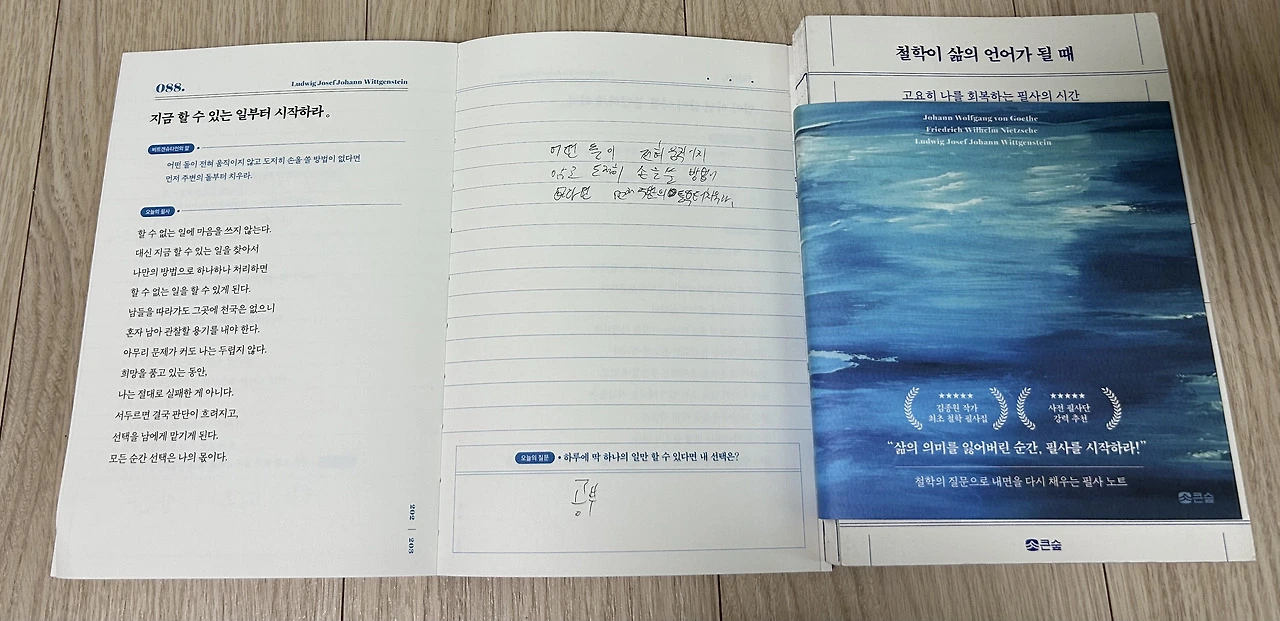 088.
Ludwig Josef Johann Wittgenstein
지금 할 수 있는 일부터 시작하라。
비트겐슈타인의 말
어떤 돌이 전혀 움직이지 않고 도저히 손을 쓸 방법이 없다면
먼저 주변의 돌부터 치우라.
오늘의 필사
할 수 없는 일에 마음을 쓰지 않는다.
대신 지금 할 수 있는 일을 찾아서
나만의 방법으로 하나하나 처리하면
할 수 없는 일을 할 수 있게 된다.
남들을 따라가도 그곳에 천국은 없으니
혼자 남아 관찰할 용기를 내야 한다.
아무리 문제가 커도 나는 두렵지 않다.
희망을 품고 있는 동안,
나는 절대로 실패한 게 아니다.
서두르면 결국 판단이 흐려지고,
선택을 남에게 맡기게 된다.
모든 순간 선택은 나의 몫이다.
202 | 203
어떤 돌이 전혀 움직이지
않고 도저히 손을 쓸 방법이
없다면 먼저 주변의 돌부터 치우라.
오늘의 질문 • 하루에 딱 하나의 일만 할 수 있다면 내 선택은?
공부
철학이 삶의 언어가 될 때
고요히 나를 회복하는 필사의 시간
Johann Wolfgang von Goethe
Friedrich Wilhelm Nietzsche
Ludwig Josef Johann Wittgenstein
★★★★★
김종원 작가
최초 철학 필사집
★★★★★
사전 필사단
강력 추천
“삶의 의미를 잃어버린 순간, 필사를 시작하라!”
철학의 질문으로 내면을 다시 채우는 필사 노트
큰숲
큰숲